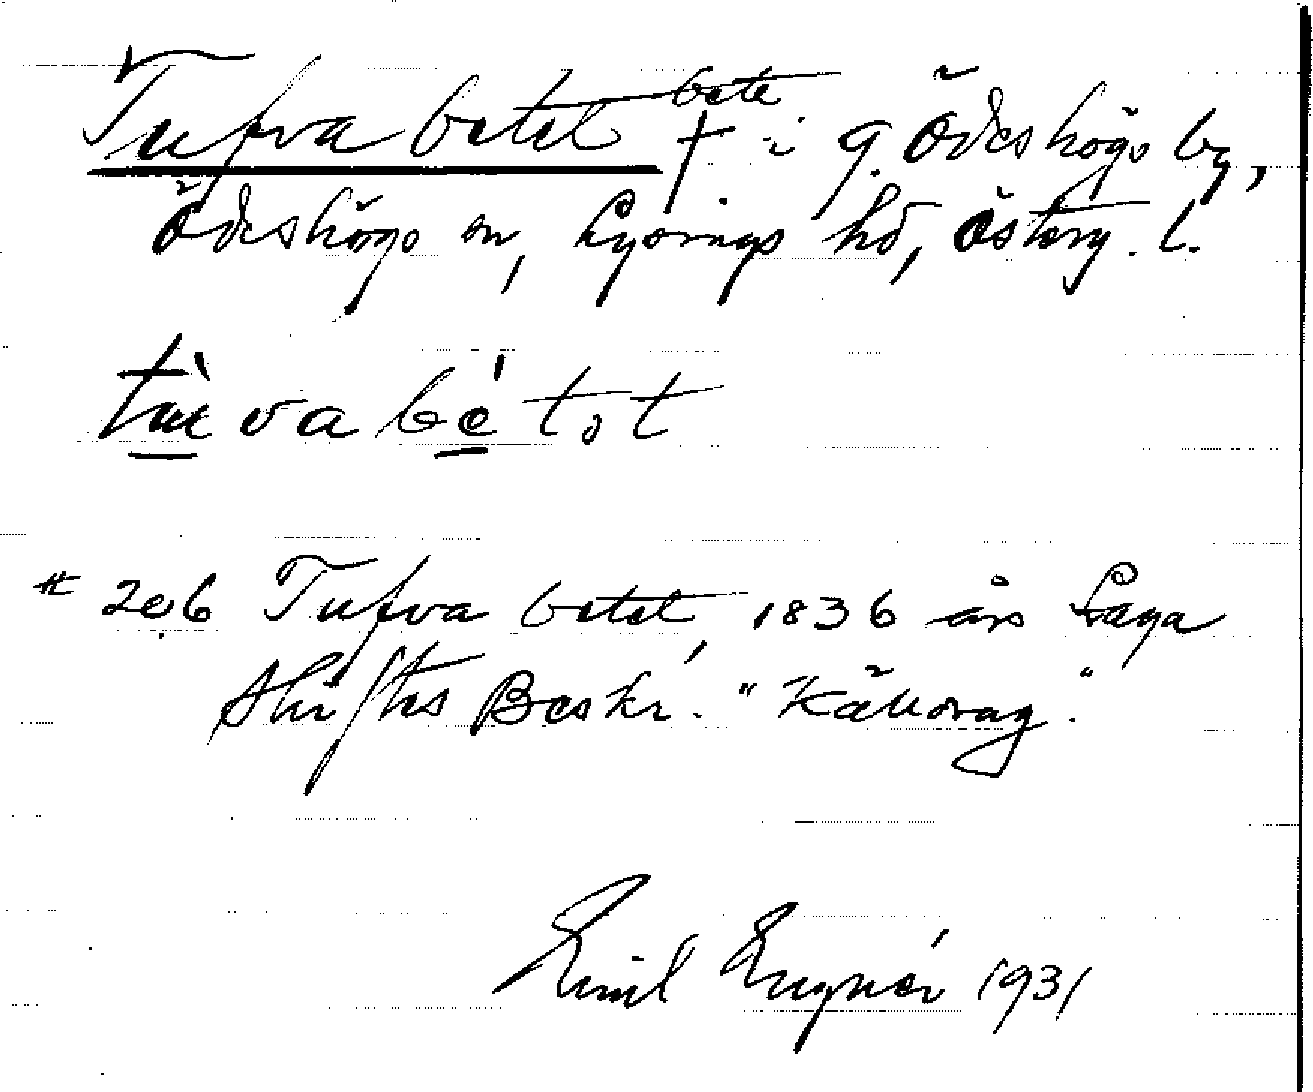 Tufva betet bete † i g. Ödeshögs by,
Ödeshögs sn, Lysings hd, Österg. l.
tùvabétət
# 206 Tufva betet, 1836 års Laga
Skiftes Beskr. "Källorag."
Emil Engnér 1931